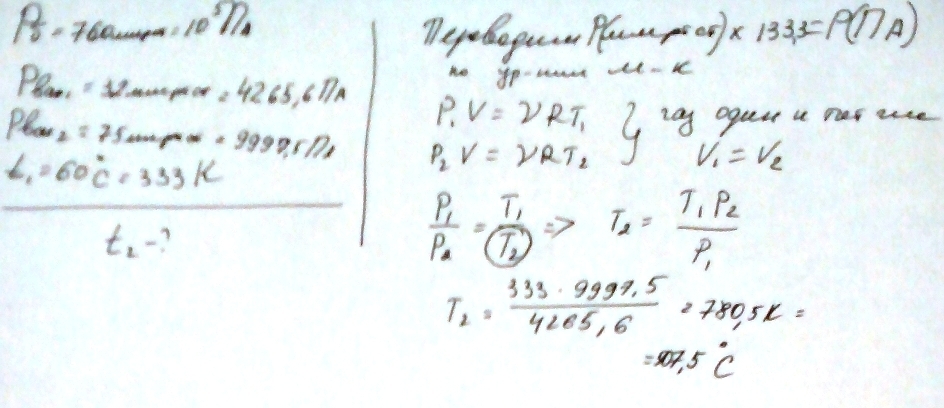 P₀ = 760 мм рт = 10⁵ Па
Pвак₁ = 32 мм рт ст = 4265,6 Па
Pвак₂ = 75 мм рт ст = 9997,5 Па
t₁ = 60°C = 333 K
t₂ - ?
Переводим P(мм рт ст) × 133,3 = P(ПА)
по ур-нию М-К
P₁V = νRT₁ } газ один и тот же
P₂V = νRT₂ V₁ = V₂
P₁/P₂ = T₁/T₂ => T₂ = T₁P₂/P₁
T₂ = 333 · 9997,5/4265,6 = 780,5 K =
= 507,5 °C